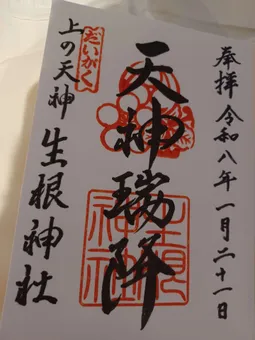 奉拝 令和八年一月二十一日
天神瑞降
だいがく
上の天神 生根神社